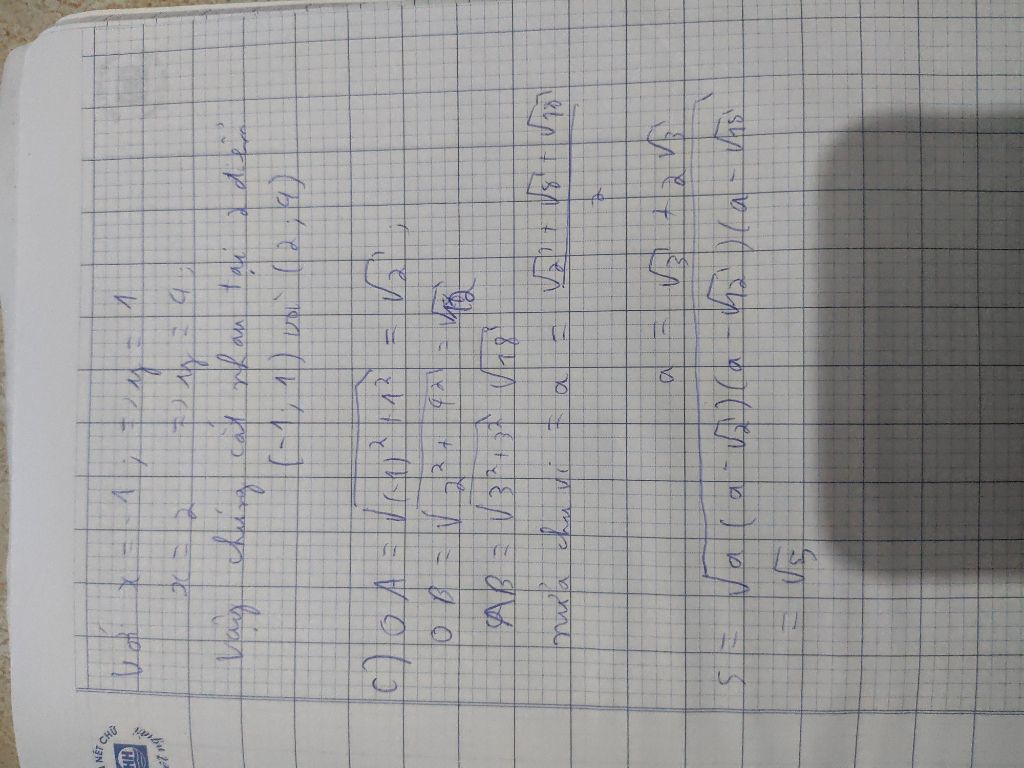 Với x = -1 ; => y = 1
x = 2 => y = 4 ;
Vậy chúng cắt nhau tại 2 điểm
(-1, 1) với (2, 4)
c) OA = √(-1)² + 1² = √2 ;
OB = √2² + 4² =
AB = √3² + 3² √18
nửa chu vi = a = √2 + √8 + √18
2
a = √3 + 2√3
S = √a (a - √2)(a - √12)(a - √18)
= √5
NÉT CHỮ
HH